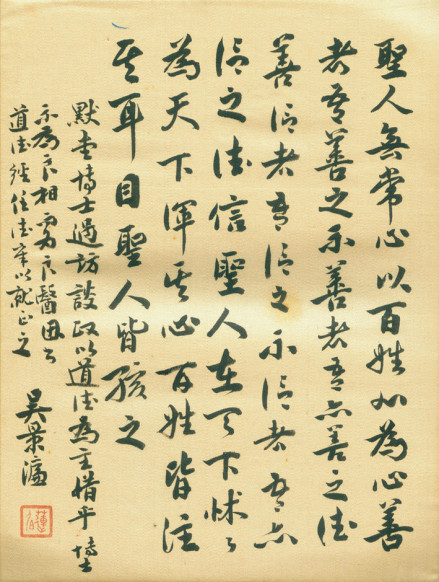 聖人無常心以百姓心為心善
者吾善之不善者吾亦善之德
善信者吾信之不信者吾亦
信之德信聖人在天下怵〻
為天下渾其心百姓皆注
其耳目聖人皆孩之
默博士過訪談政以道德為主惜乎 博士
不為良相為良醫因
道德經任德章以就正之
吳景濂
蓮伯